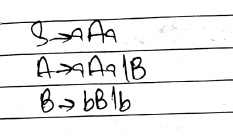 S→aAa
A→aAa|B
B→bB|b